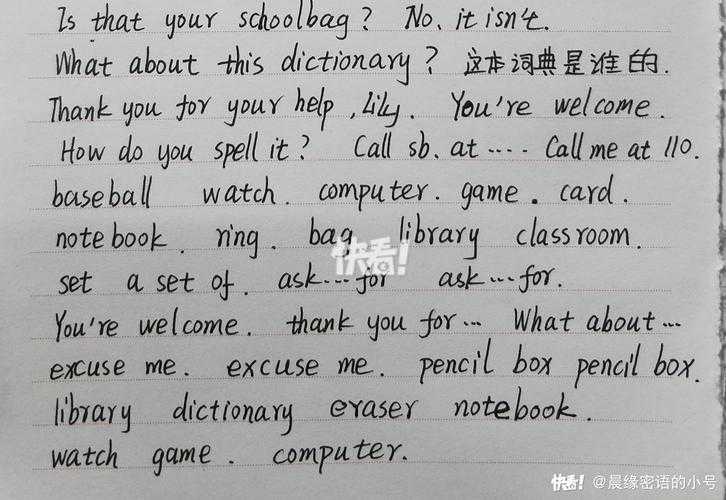 Is that your schoolbag? No, it isn't.
What about this dictionary? 这本词典是谁的.
Thank you for your help, Lily. You're welcome.
How do you spell it? Call sb. at .... Call me at 110.
baseball watch. computer. game. card.
notebook. ring. bag library classroom.
set a set of. ask...for ask...for.
快看!
You're welcome. thank you for... What about...
excuse me. excuse me. pencil box pencil box.
library dictionary eraser notebook.
watch game. computer.
快看! @晨缘密语的小号